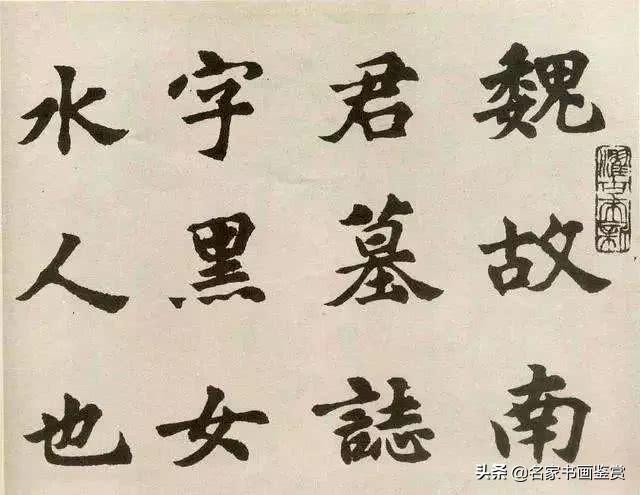 魏故南
君墓誌
字黑女
水人也
头条 @名家书画鉴赏